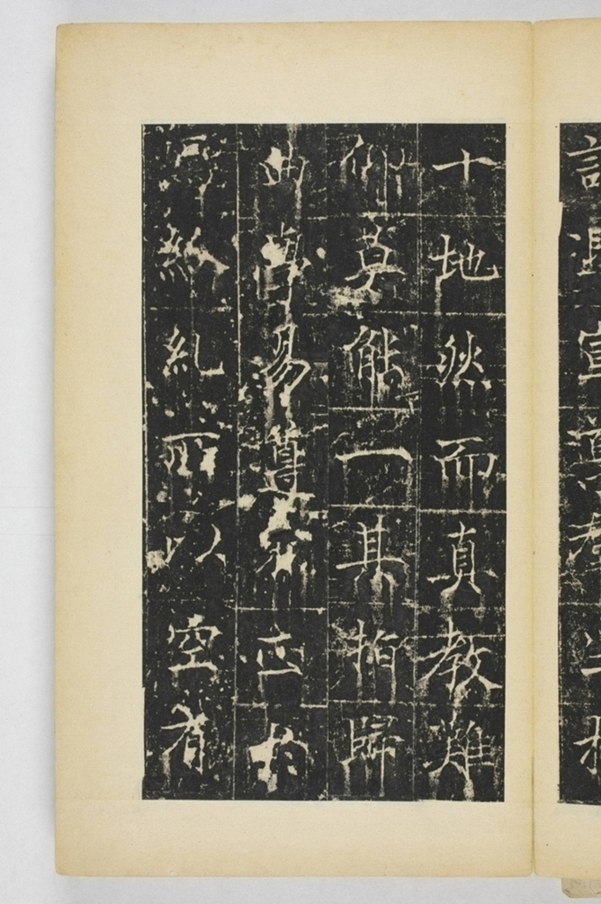 十地然而真教難
仰莫能一其指歸
曲學易遵邪正於
焉紛糺所以空有